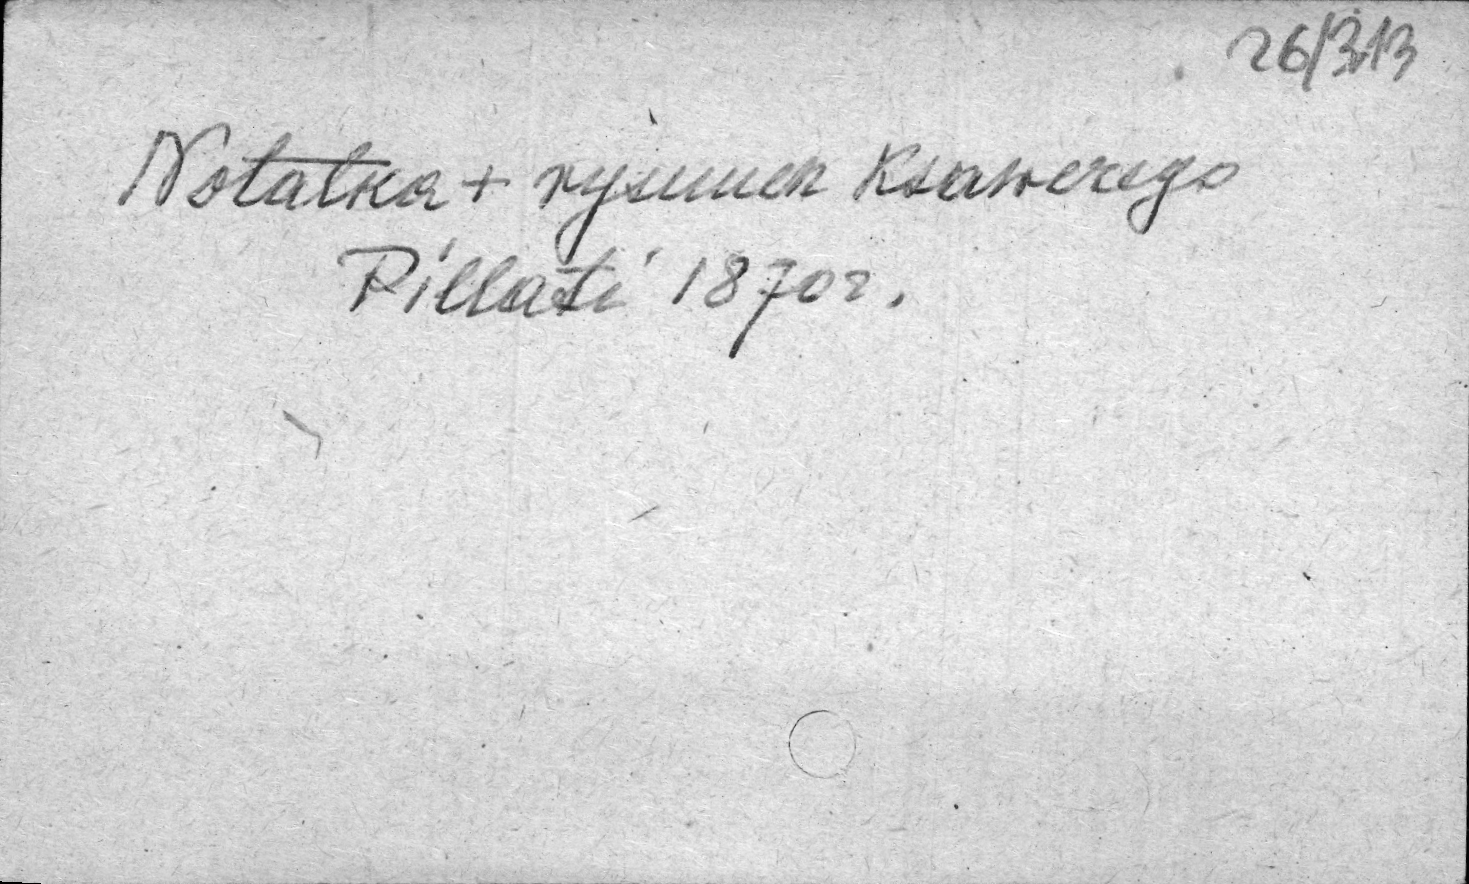 26/313
Notatka + rysunek Ksawerego
Pillati 1870 r.